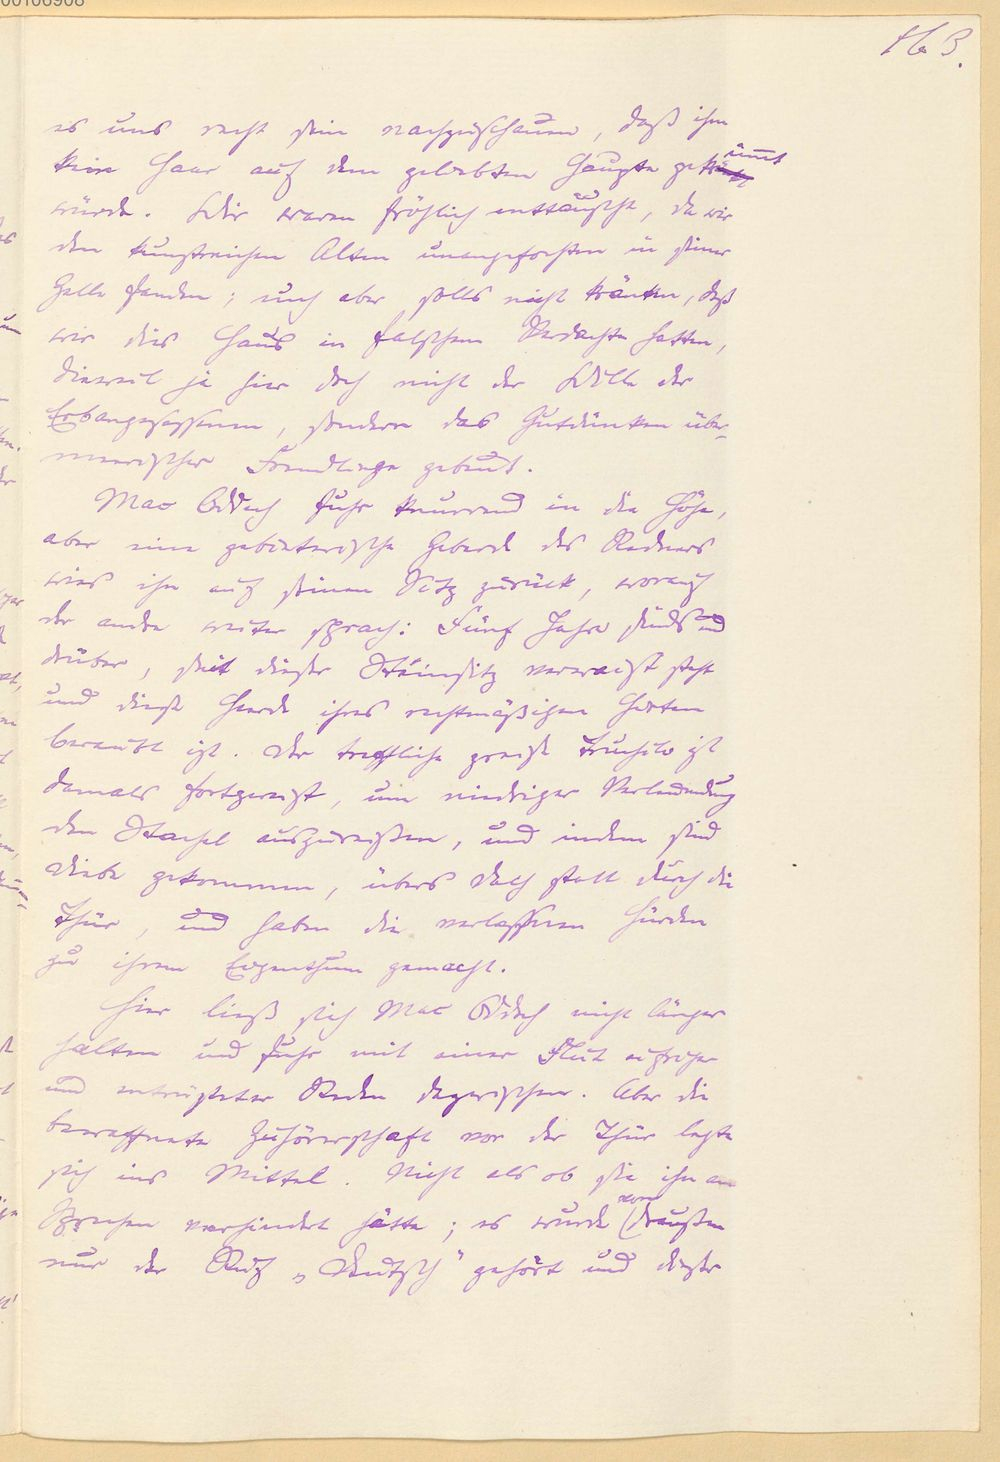 163.
es uns recht sein nachzuschauen, daß ihm
kein Haar auf dem gelobten Haupte gekrümmt
würde. Wir waren fröhlich enttäuscht, da wir
den kunstreichen Alten unangefochten in seiner
Zelle fanden; euch aber solls nicht kränken, daß
wir dies Haus in falschem Verdachte hatten,
dieweil ja hier doch nicht der Wille der
Erbangesessenen, sondern das Gutdünken über-
meerischer Fremdlinge gebeut.
Mac Oddoch fuhr knurrend in die Höhe,
aber eine gebieterische Geberde des Redners
wies ihn auf seinen Sitz zurück, worauf
der andre weiter sprach: Fünf Jahre sinds und
drüber, seit dieser Steinsitz verwaist steht
und diese Herde ihres rechtmäßigen Hirten
beraubt ist. Der treffliche greise Truchlo ist
damals fortgereist, um niedriger Verleumdung
den Stachel auszureißen, und indem sind
Diebe gekommen, übers Dach statt durch die
Thür, und haben die verlassenen Hürden
zu ihrem Eigenthum gemacht.
Hier ließ sich Mac Oddoch nicht länger
halten und fuhr mit einer Flut
und entrüsteter Reden dazwischen. Aber die
bewaffnete Zuhörerschaft vor der Thür legte
sich ins Mittel. Nicht als ob sie ihn am
Sprechen verhindert hätte; es wurde von draußen
nur der Ruf „Deutsch" gehört und dieser